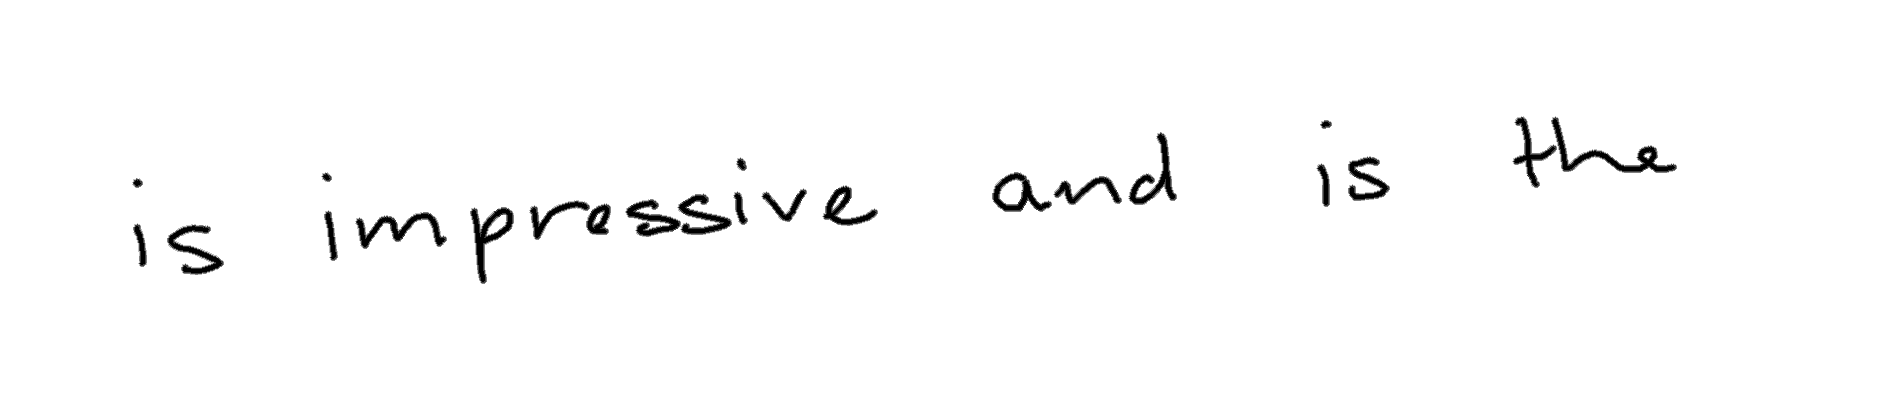 is impressive and is the